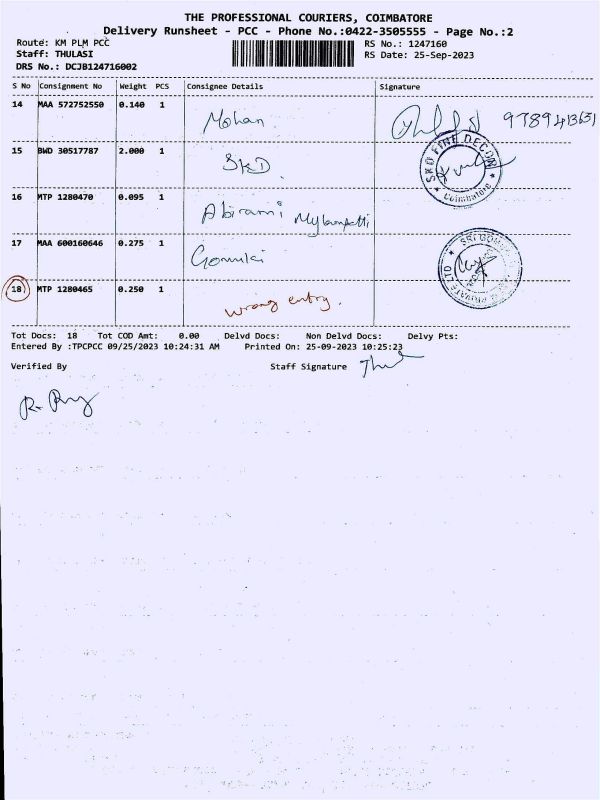 THE PROFESSIONAL COURIERS, COIMBATORE
Delivery Runsheet - PCC - Phone No.:0422-3505555 - Page No.:2
Route: KM PLM PCC RS No.: 1247160
Staff: THULASI RS Date: 25-Sep-2023
DRS No.: DCJB124716002
S No Consignment No Weight PCS Consignee Details Signature
14 MAA 572752550 0.140 1 Mohan
15 BWD 30517787 2.000 1 SKD
SKD FINE DECOR
Coimbatore
16 MTP 1280470 0.095 1 Abirami
17 MAA 600160646 0.275 1
SRI
PRIVATE LTD
18 MTP 1280465 0.250 1 wrong entry.
Tot Docs: 18 Tot COD Amt: 0.00 Delvd Docs: Non Delvd Docs: Delvy Pts:
Entered By :TPCPCC 09/25/2023 10:24:31 AM Printed On: 25-09-2023 10:25:23
Verified By Staff Signature